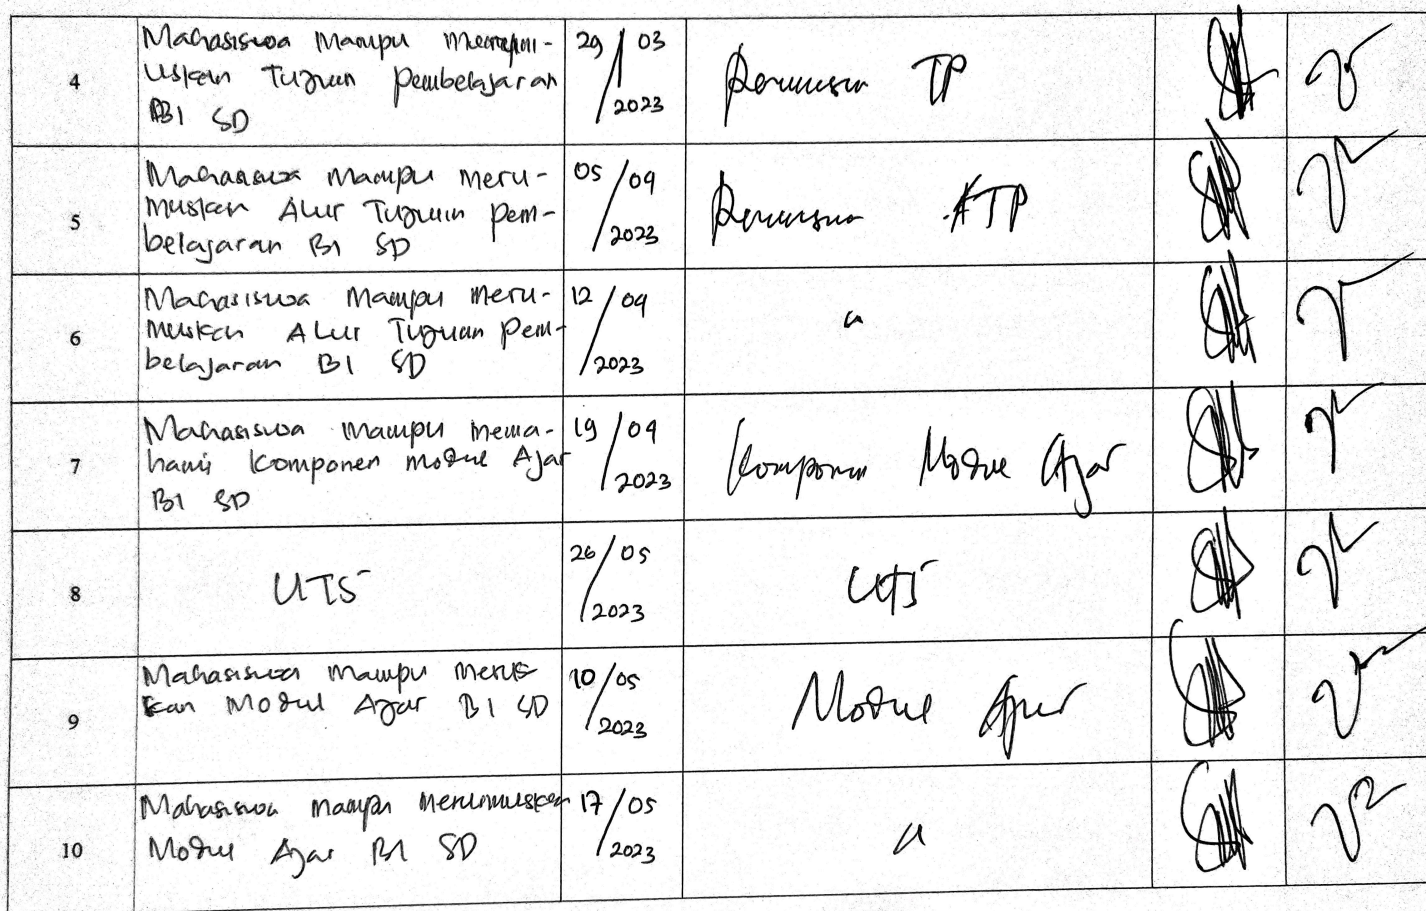 4
Mahasiswa mampu merumu-
uskan Tujuan pembelajaran
BI SD
29/03
/2023
Perumusan TP
5
Mahasiswa mampu meru-
muskan Alur Tujuan pem-
belajaran BI SD
05/04
/2023
Perumusan ATP
6
Mahasiswa mampu meru-
muskan Alur Tujuan pem-
belajaran BI SD
12/04
/2023
7
Mahasiswa mampu mema-
hami komponen modul Ajar
BI SD
19/04
/2023
Komponen Modul Ajar
8
UTS
26/05
/2023
UTS
9
Mahasiswa mampu merus
kan Modul Ajar BI SD
10/05
/2023
Modul Ajar
10
Mahasiswa mampu merumuskan
Modul Ajar BI SD
17/05
/2023